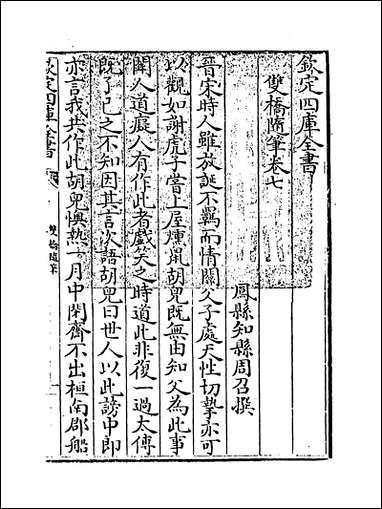 欽定四庫全書
雙橋隨筆卷七
鳳縣知縣周召撰
晉宋時人雖放誕不羈而情關父子處天性切摯亦可
以觀如謝虎子嘗上屋燻鼠胡兒既無由知父為此事
聞人道癡人有作此者戲笑之時道此非復一過太傅
既了已之不知因其言次語胡兒曰世人以此謗中郎
亦言我共作此胡兒懊熱一月中閉齋不出桓南郡船
欽定四庫全書
雙橋隨筆